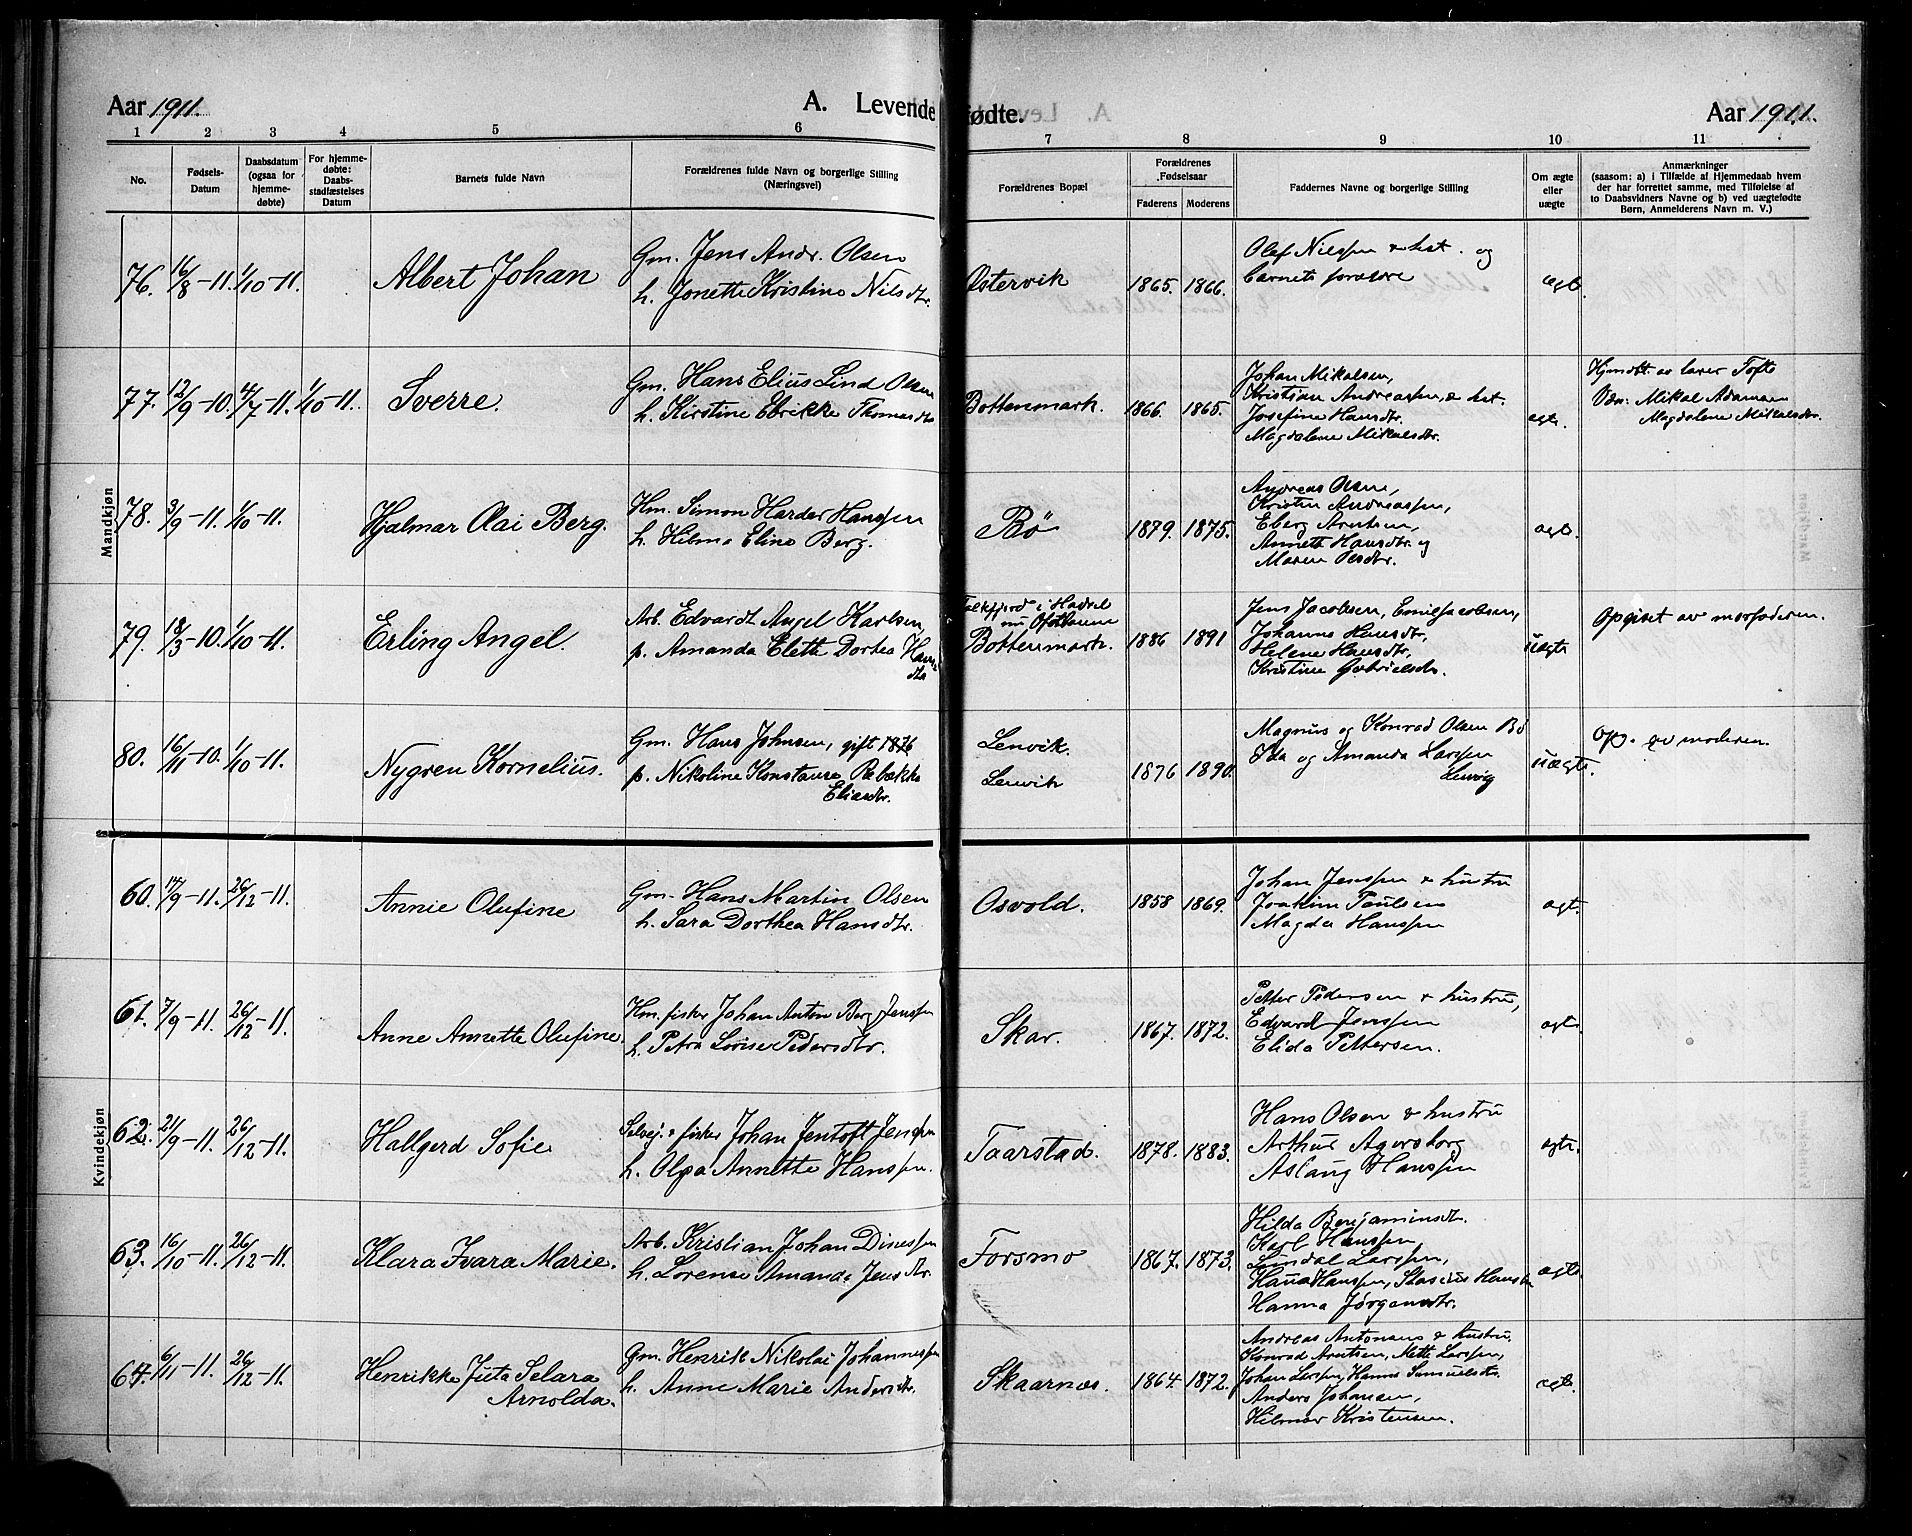 Aar 1911. A. Levende fødte. Aar 1911.
1 2 3 4 5 6 7 8 9 10 11
No.
Fødsels-
Datum
Daabsdatum
(ogsaa for
hjemme-
døbte)
For hjemme-
døbte:
Daabs-
stadfæstelses
Datum
Barnets fulde Navn
Forældrenes fulde Navn og borgerlige Stilling
(Næringsvei)
Forældrenes Bopæl
Forældrenes
Fødselsaar
Faderens Moderens
Faddernes Navne og borgerlige Stilling
Om ægte
eller
uægte
Anmærkninger
(saasom: a) i Tilfælde af Hjemmedaab hvem
der har forrettet samme, med Tilføielse af
to Daabsvidners Navne og b) ved uægtefødte
Børn, Anmelderens Navn m. V.)
Mandkjøn
76. 16/8-11. 1/10-11. Albert Johan
Gm. Jens Andr. Olsen
h. Jonette Kristine Nilsdtr.
Ostervik 1865. 1866.
Olef Nilssen & hst. og
barnets forældre
ægte.
77. 12/9-10. 4/7-11. 1/10-11. Sverre.
Gm. Hans Elius Lind Olsen
h. Kirstine Ebrikke Thomasdtr
Bottenmark. 1866. 1865.
Johan Mikalsen,
Kristian Andreassen, & hst.
Josefine Hansdtr.
Magdalene Mikalsdtr.
ægte.
Hjemdbt. av lærer Tofte
Vdn: Mikal Adamsen
Magdalene Mikalsdtr.
78. 3/9-11. 1/10-11. Hjalmar Olai Berg.
Hm. Simon Harder Hanssen
h. Hilma Eline Berg.
Bö 1879. 1875.
Andreas Olsen,
Kristen Andreassen,
Eberg Arntsen,
Anneth Hansdtr. og
Maren Olsdtr.
ægte.
79. 18/3-10. 1/10-11. Erling Angel.
Arb. Edvardt Angel Karlsen,
p. Amanda Eleth Dortea Hans
dtr
i Hadsel
nu Ofotheren
Bottenmark. 1886 1891
Jens Jacobsen, Emil Jacobsen,
Johanne Hansdtr,
Helene Hansdtr.
Kristine Gabrielsdtr.
uægte
Opgivet av morfaderen.
80. 16/11-10. 1/10-11. Nygren Kornelius.
Gm. Hans Johnsen, gift 1876
p. Nikoline Konstanse Rebække
Eliasdtr.
Lenvik.
Lenvik 1876 1890.
Magnus og Konrad Olsen Bö
Oda og Amanda Larssen
Lenvig
uægte.
Op. av moderen.
Kvindekjøn
60. 14/9-11. 26/12-11. Annie Olufine
Gm. Hans Martin Olsen
h. Sara Dorthea Hansdtr.
Osvold. 1858 1869.
Johan Jenssen & hustru
Joakim Paulsen
Magda Hanssen
ægt.
61. 7/9-11. 26/12-11. Anne Annette Olufine.
Hm. fisker Johan Anton Berg Jenssen
h. Petra Lovise Pedersdtr.
Skar. 1867. 1872.
Petter Pedersen & hustru,
Edvard Jenssen
Elida Pettersen.
ægte
62. 21/9-11. 26/12-11. Hallgerd Sofie
Selvej. & fisker Johan Jentoft Jenssen
h. Olga Annette Hanssen.
Taarstad. 1878. 1883.
Hans Olsen & hustru
Arthur Agersborg
Aslaug Hanssen
ægte.
63. 16/10-11. 26/12-11. Klara Ivara Marie.
Arb. Kristian Johan Dinessen
h. Lorense Amanda Jensdtr.
Forsmo 1867. 1873.
Hilda Benjaminsdtr.
Karl Hanssen,
Lindal Larssen,
Hanna Hanssen, Stasius Hanssen
Hanna Jørgensdtr.
ægte
64. 6/11-11. 26/12-11. Henrikke Juta Selara
Arnolda.
Gm. Henrik Nikolai Johannessen
h. Anne Marie Andersdtr.
Skaarnes. 1864. 1872.
Andreas Antonsen & hustru.
Konrad Arntsen, Mette Larssen,
Johan Larssen, Hanna Samuelsdtr.
Anders Johansen,
Hilmar Kristensen.
ægte.